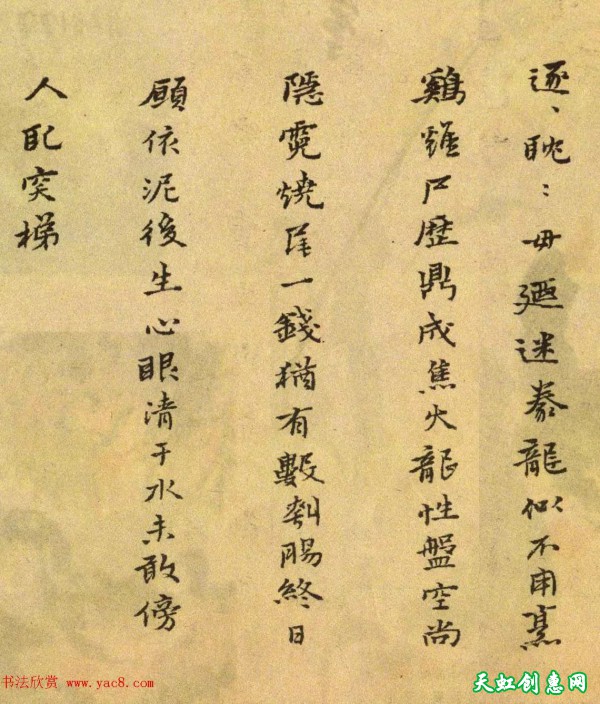 逐、眈：毋迺迷豢龍似不用熏
雞雖尸歷鼎成焦火龍性盤空尚
隱霓燒尾一錢猶有數腸終日
願依泥後生心眼清于水未敢傍
人配突梯
书法欣赏 www.yac8.com
天虹创惠网